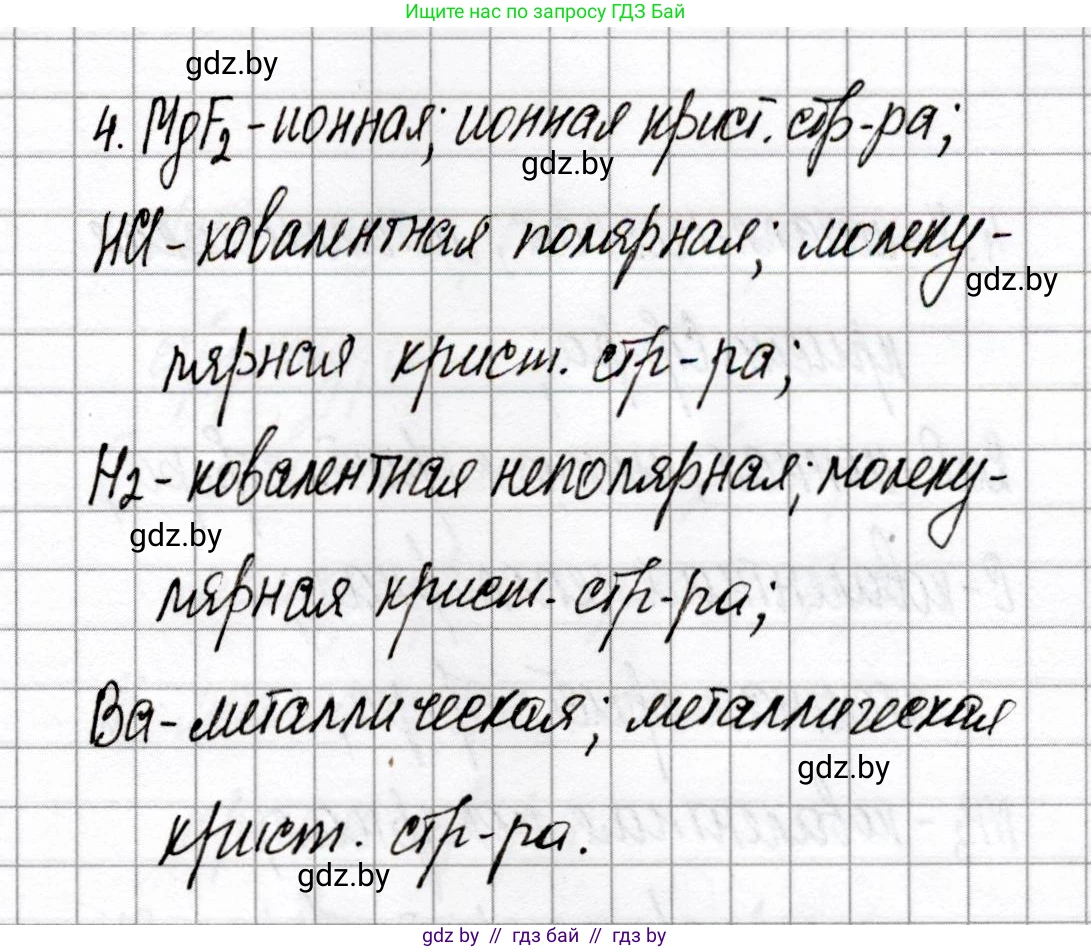 Ищите нас по запросу ГДЗ Бай
gdz.by
4. MgF₂ - ионная; ионная крист. стр-ра;
gdz.by
HCl - ковалентная полярная; молеку-
gdz.by
лярная крист. стр-ра;
H₂ - ковалентная неполярная; молеку-
gdz.by
лярная крист. стр-ра;
Ba - металлическая; металлическая
gdz.by
крист. стр-ра.
gdz.by
gdz by // гдз бай // гдз by